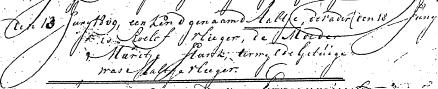 den 13 Juny 1809, een kind genaamd Aaltje, de vader den 18 Juny
is Roelof Vlieger, de Moeder
Marchje Hank, terwyl de getuige
was Aaltje Vlieger.